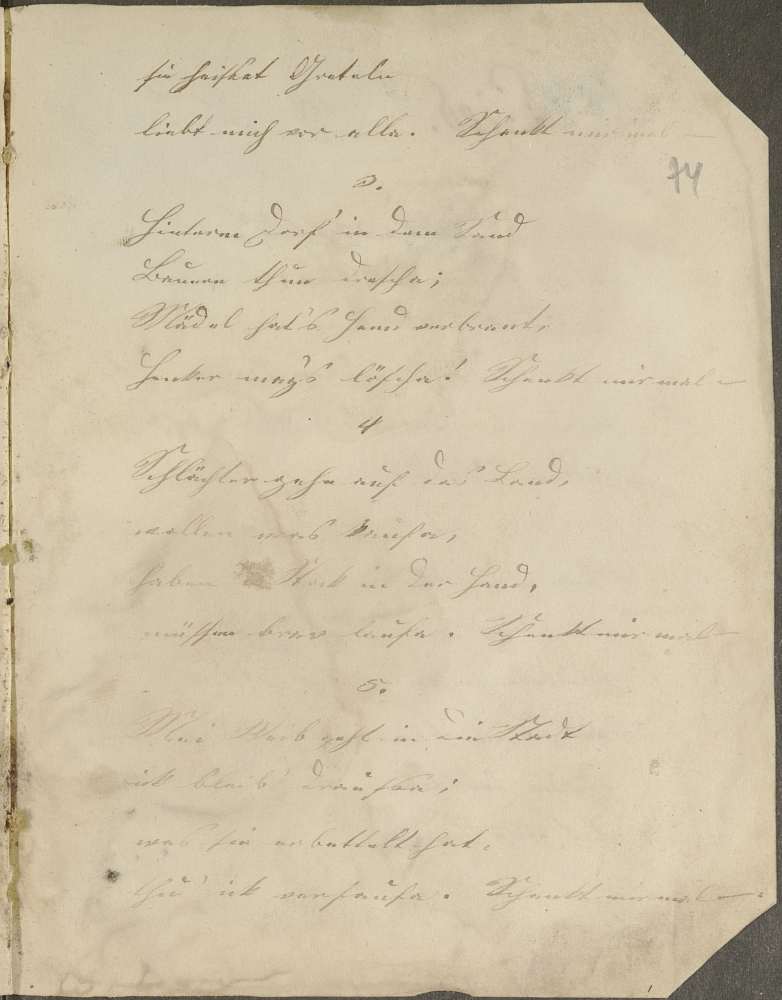 sie heißet Gretele
liebt mich vor alle. Schenkt mir mal
74
3.
Hinterm Dorf in dem Land
Bauern thun dresche;
Mädel hat's Hemd verbrant,
Henker mag's lösche! Schenkt mir mal
4
Schlächter gehn auf das Land,
wollen was kaufa,
haben Stock in der Hand,
müssen brav laufa. Schenkt mir mal
5.
Mei Weib geht in die Stadt
ick bleib' draußa;
was sie erbettelt hat,
thu' ick versaufa. Schenkt mir mal